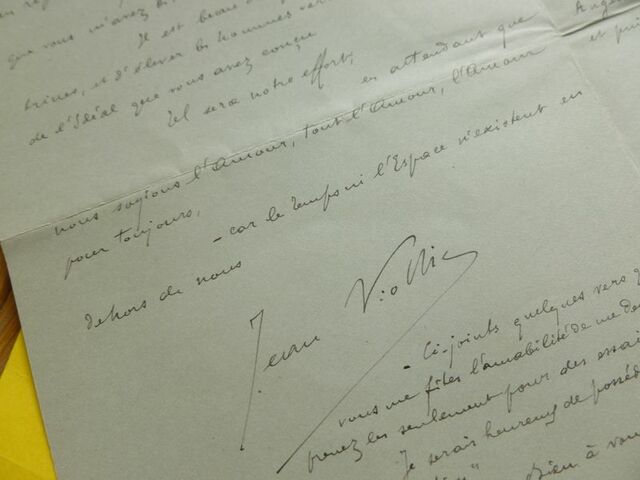 que vous m'avez
Il est beau
trines, et d'élever les hommes vers
de l'Idéal que vous avez conçu
Tel sera notre effort,
en attendant que
nous soyions l'Amour, tout l'Amour, l'Amour
pour toujours,
- car le Temps ni l'Espace n'existent en
dehors de nous
Jean Viollis
- Ci-joints quelques vers
vous me fîtes l'amabilité de me
prenez les seulement pour des essais
Je serais heureux de posséd
à vou
et pui